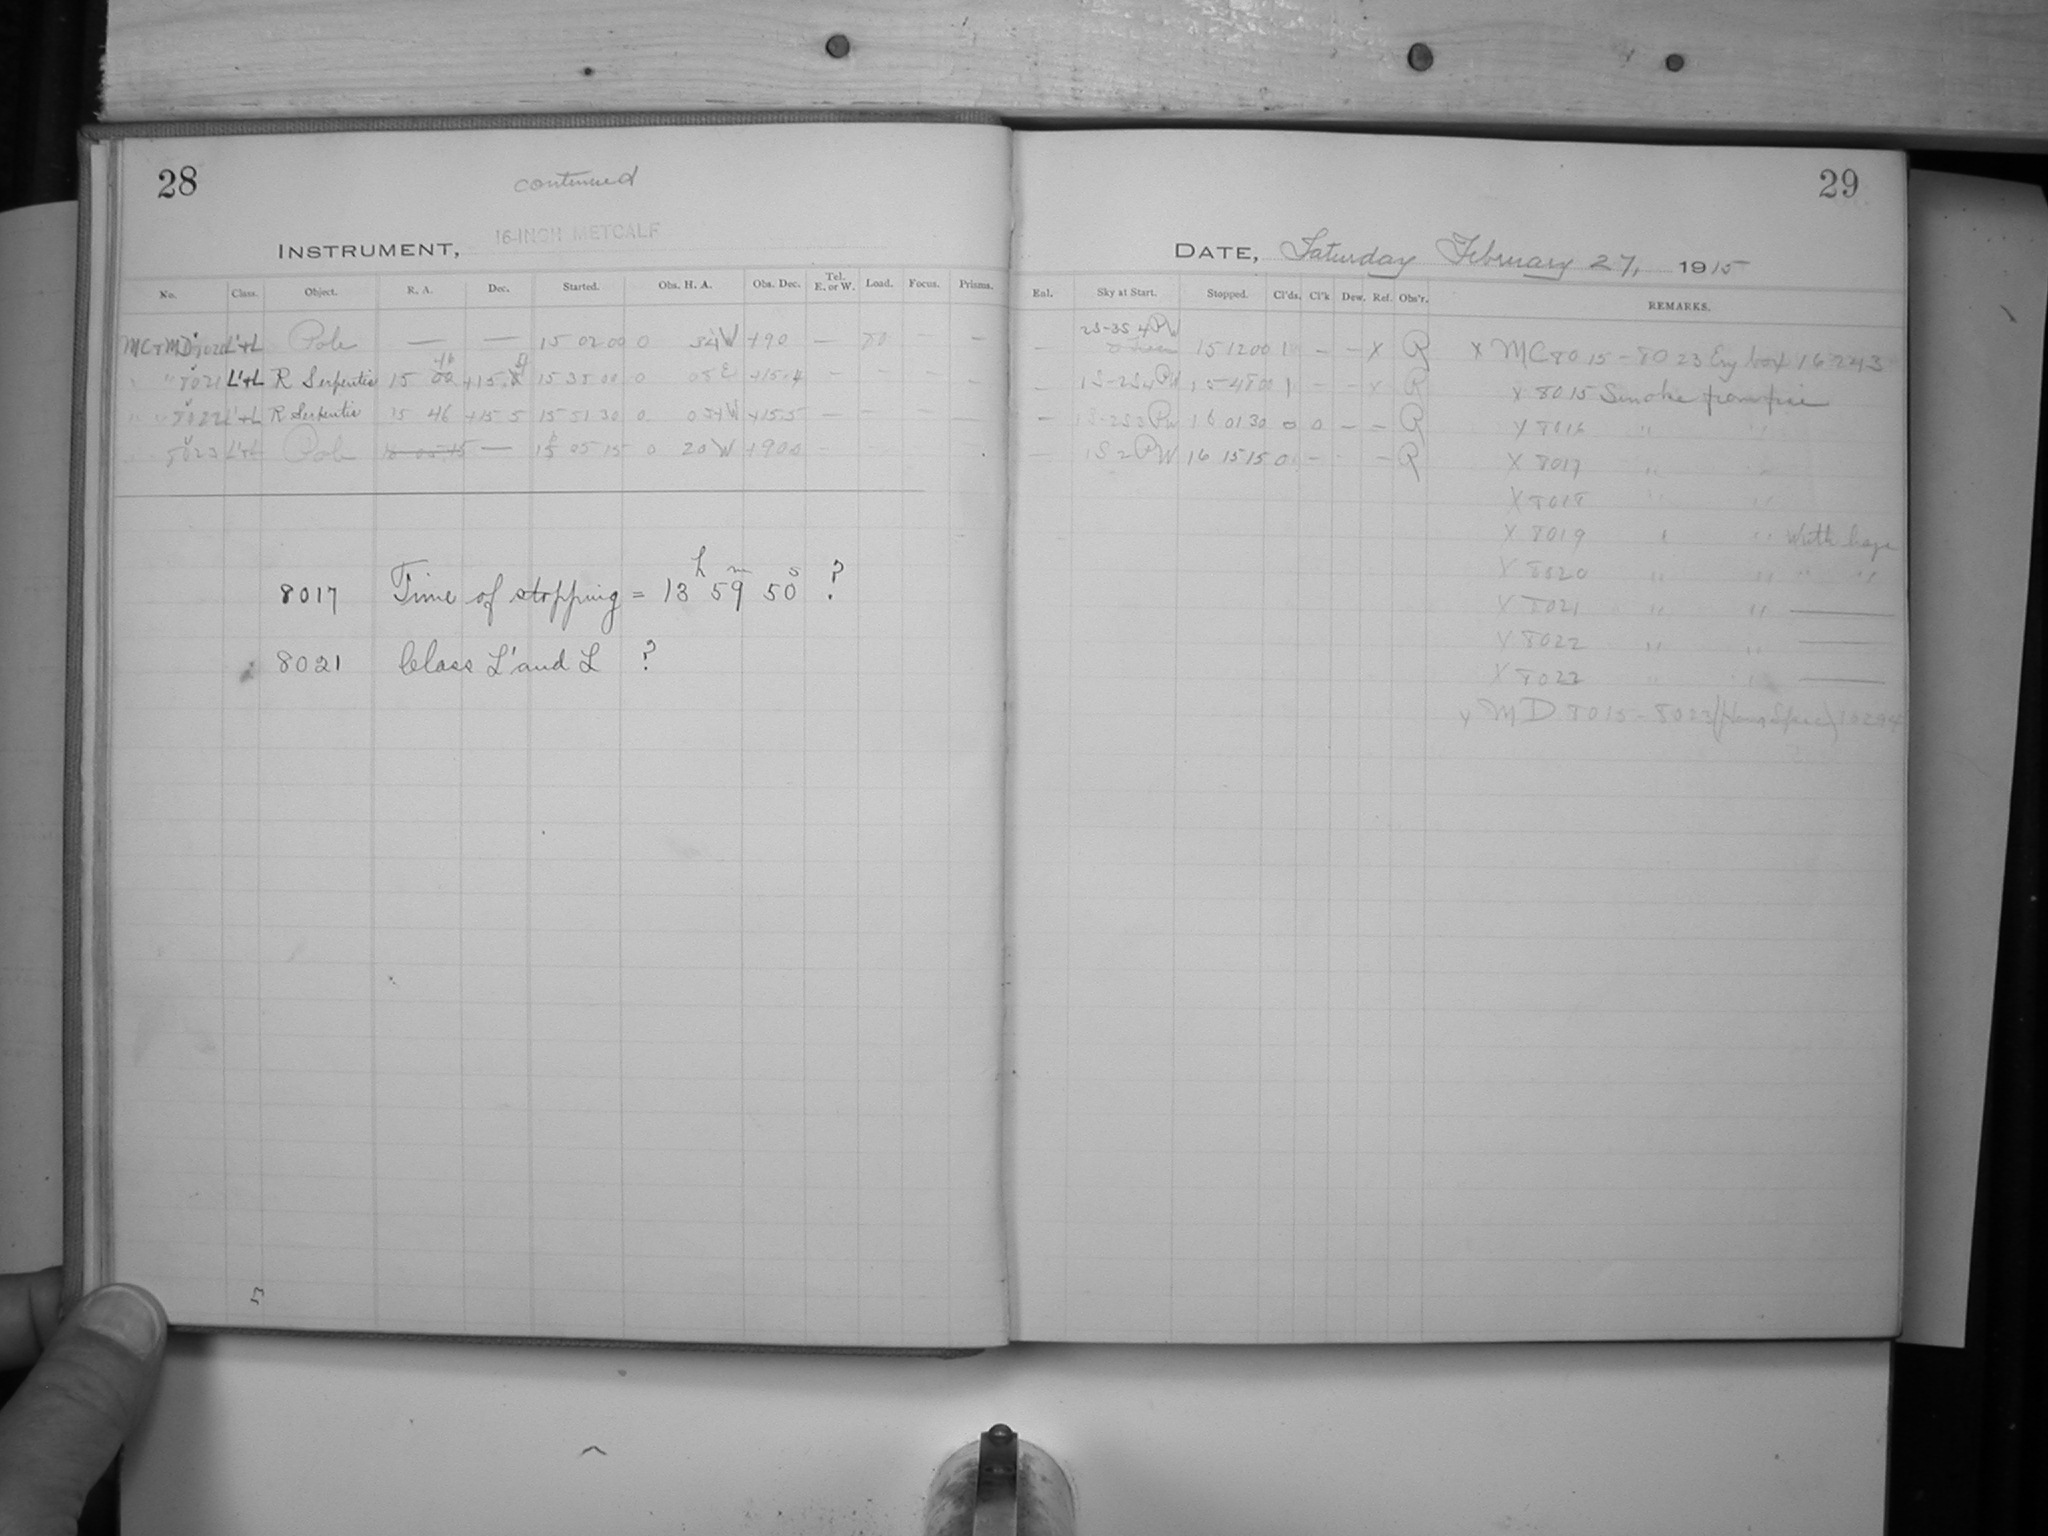 28
continued
INSTRUMENT, 16-INCH METCALF
No. Class. Object. R. A. Dec. Started. Obs. H. A. Obs. Dec. Tel. E. or W. Load. Focus. Prisms.
MC+MD 8020 L'+L Pole — — 15 02 00 0 54 W +90 — —
" " 8021 L'+L R Serpentis 15 46 +15 15 38 00 0 08 E +15.4 — — — —
" " 8022 L'+L R Serpentis 15 46 +15 5 15 51 30 0 054 W +15.5 — — — —
8023 L'+L Pole — 16 05 15 0 20 W +90.0 —
8017 Time of stopping = 13h 59m 50s ?
8021 Class L' and L ?
29
DATE, Saturday February 27, 1915
Enl. Sky at Start. Stopped. Cl'ds. Cl'k Dew. Ref. Obs'r. REMARKS.
— 2S-3S 4PW 15 12 00 1 — — X R X MC 8015-8023 Eng box 16243
— 1S-2S4PW 15 48 00 1 — — x R X 8015 Smoke from fire
— 1S-2S3PW 16 01 30 0 0 — — R X 8016 " "
— 1S2PW 16 15 15 0 — — R X 8017 " "
X 8018 " "
X 8019 " " With haze
X 8020 " " " "
X 8021 " " —
X 8022 " " —
X 8022 " " —
X MD 8015-8023